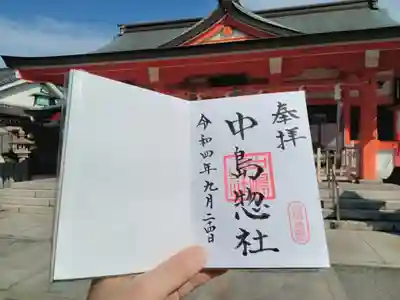 奉拝
中島惣社
令和四年九月二四日